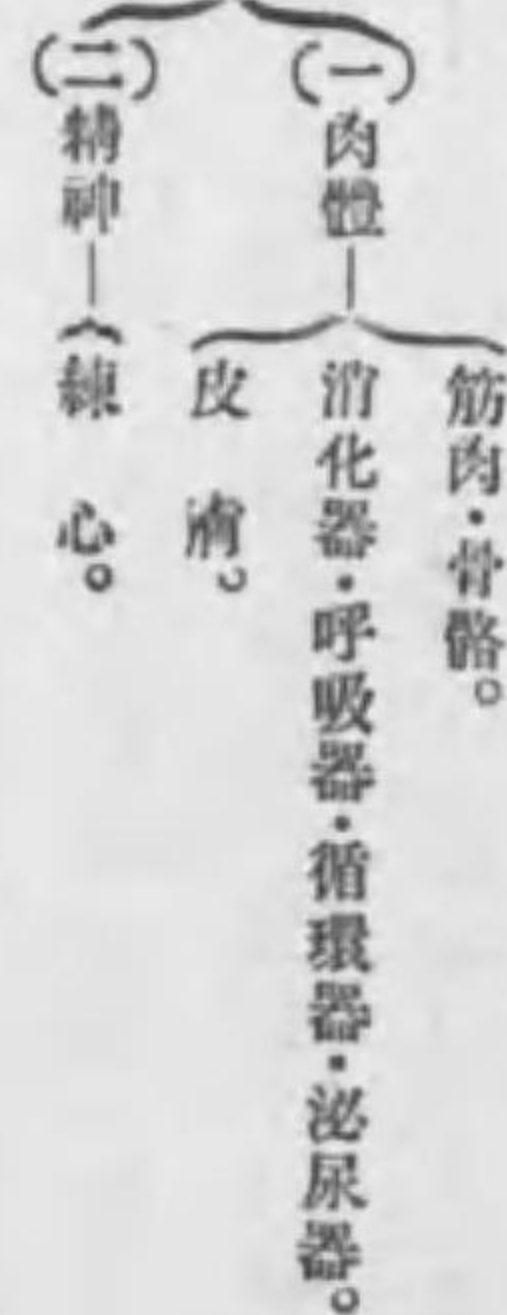 (一)肉體
筋肉・骨骼。
消化器・呼吸器・循環器・泌尿器。
皮膚。
(二)精神
練心。